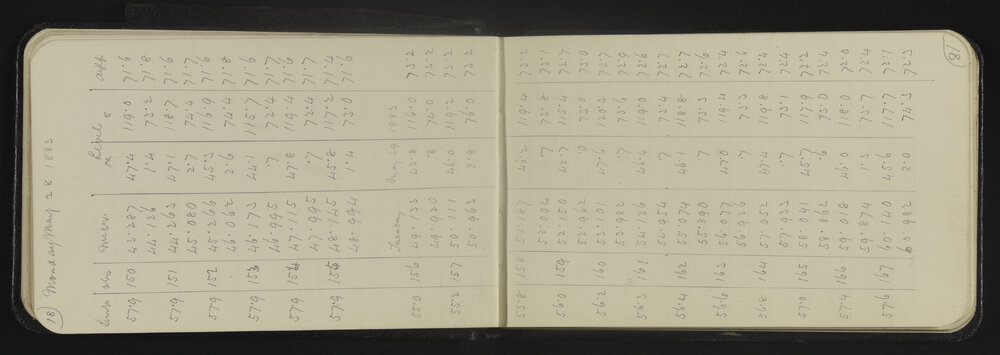 18 Monday May 28 1883
Level
Temp obs micr n s att
57.9 150 43.287 47.4 119.0 71.6
44.126 1.4 73.2 71.8
57.9 151 44.263 47.1 118.7 71.6
45.080 2.7 74.4 71.7
57.9 152 45.266 45.3 116.9 71.6
46.062 2.6 74.4 71.8
57.9 153 46.173 44.1 115.7 71.6
46.995 .7 72.4 71.7
57.9 154 47.115 47.8 119.4 71.6
47.995 .7 72.4 71.7
57.9 155 48.145 45.8 117.2 71.4
48.994 1.4 73.0 71.6
Tuesday May 29 1883
55.0 156 49.133 43.8 116.0 73.2
49.920 .8 74.0 73.2
55.2 157 50.111 46.0 119.2 73.2
50.963 2.8 76.0 73.2
55.8 158 51.187 46.2 119.4 73.2
52.004 .7 73.8 73.1
56.0 159 52.150 42.7 115.4 72.7
52.962 .0 73.0 73.0
56.2 160 53.101 47.6 120.3 72.7
53.982 .7 73.6 72.9
56.3 161 54.126 46.4 119.0 72.6
54.954 .7 73.4 72.7
56.4 162 55.074 46.1 118.8 72.7
55.890 .7 73.3 72.6
56.6 163 56.077 47.0 119.4 72.4
56.926 .7 73.3 72.6
56.8 164 57.052 47.4 119.8 72.4
57.933 .7 73.1 72.4
57.0 165 58.041 45.7 117.9 72.2
58.862 .6 73.0 72.4
57.4 166 59.018 46.0 118.0 72.0
59.874 1.3 73.7 72.4
57.6 167 60.140 45.6 117.7 72.1
60.982 2.0 74.3 72.3
18